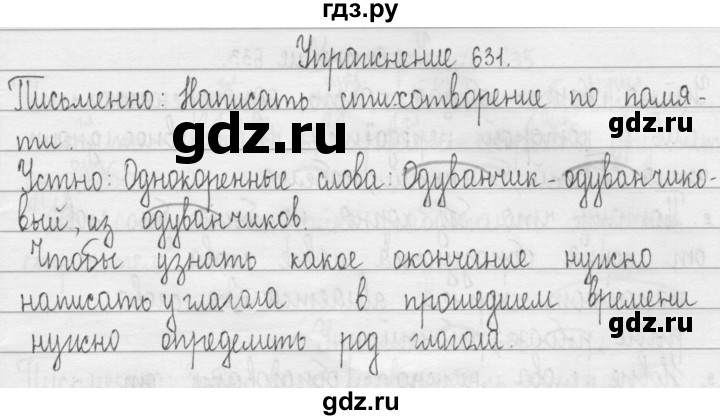 гдз.ру
Упражнение 631.
Письменно: Написать стихотворение по памя-
ти
gdz.ru
Устно: Однокоренные слова: Одуванчик-одуванчико-
вый, из одуванчиков.
Чтобы узнать какое окончание нужно
написать у глагола в прошедшем времени
нужно определить род глагола.
gdz.ru